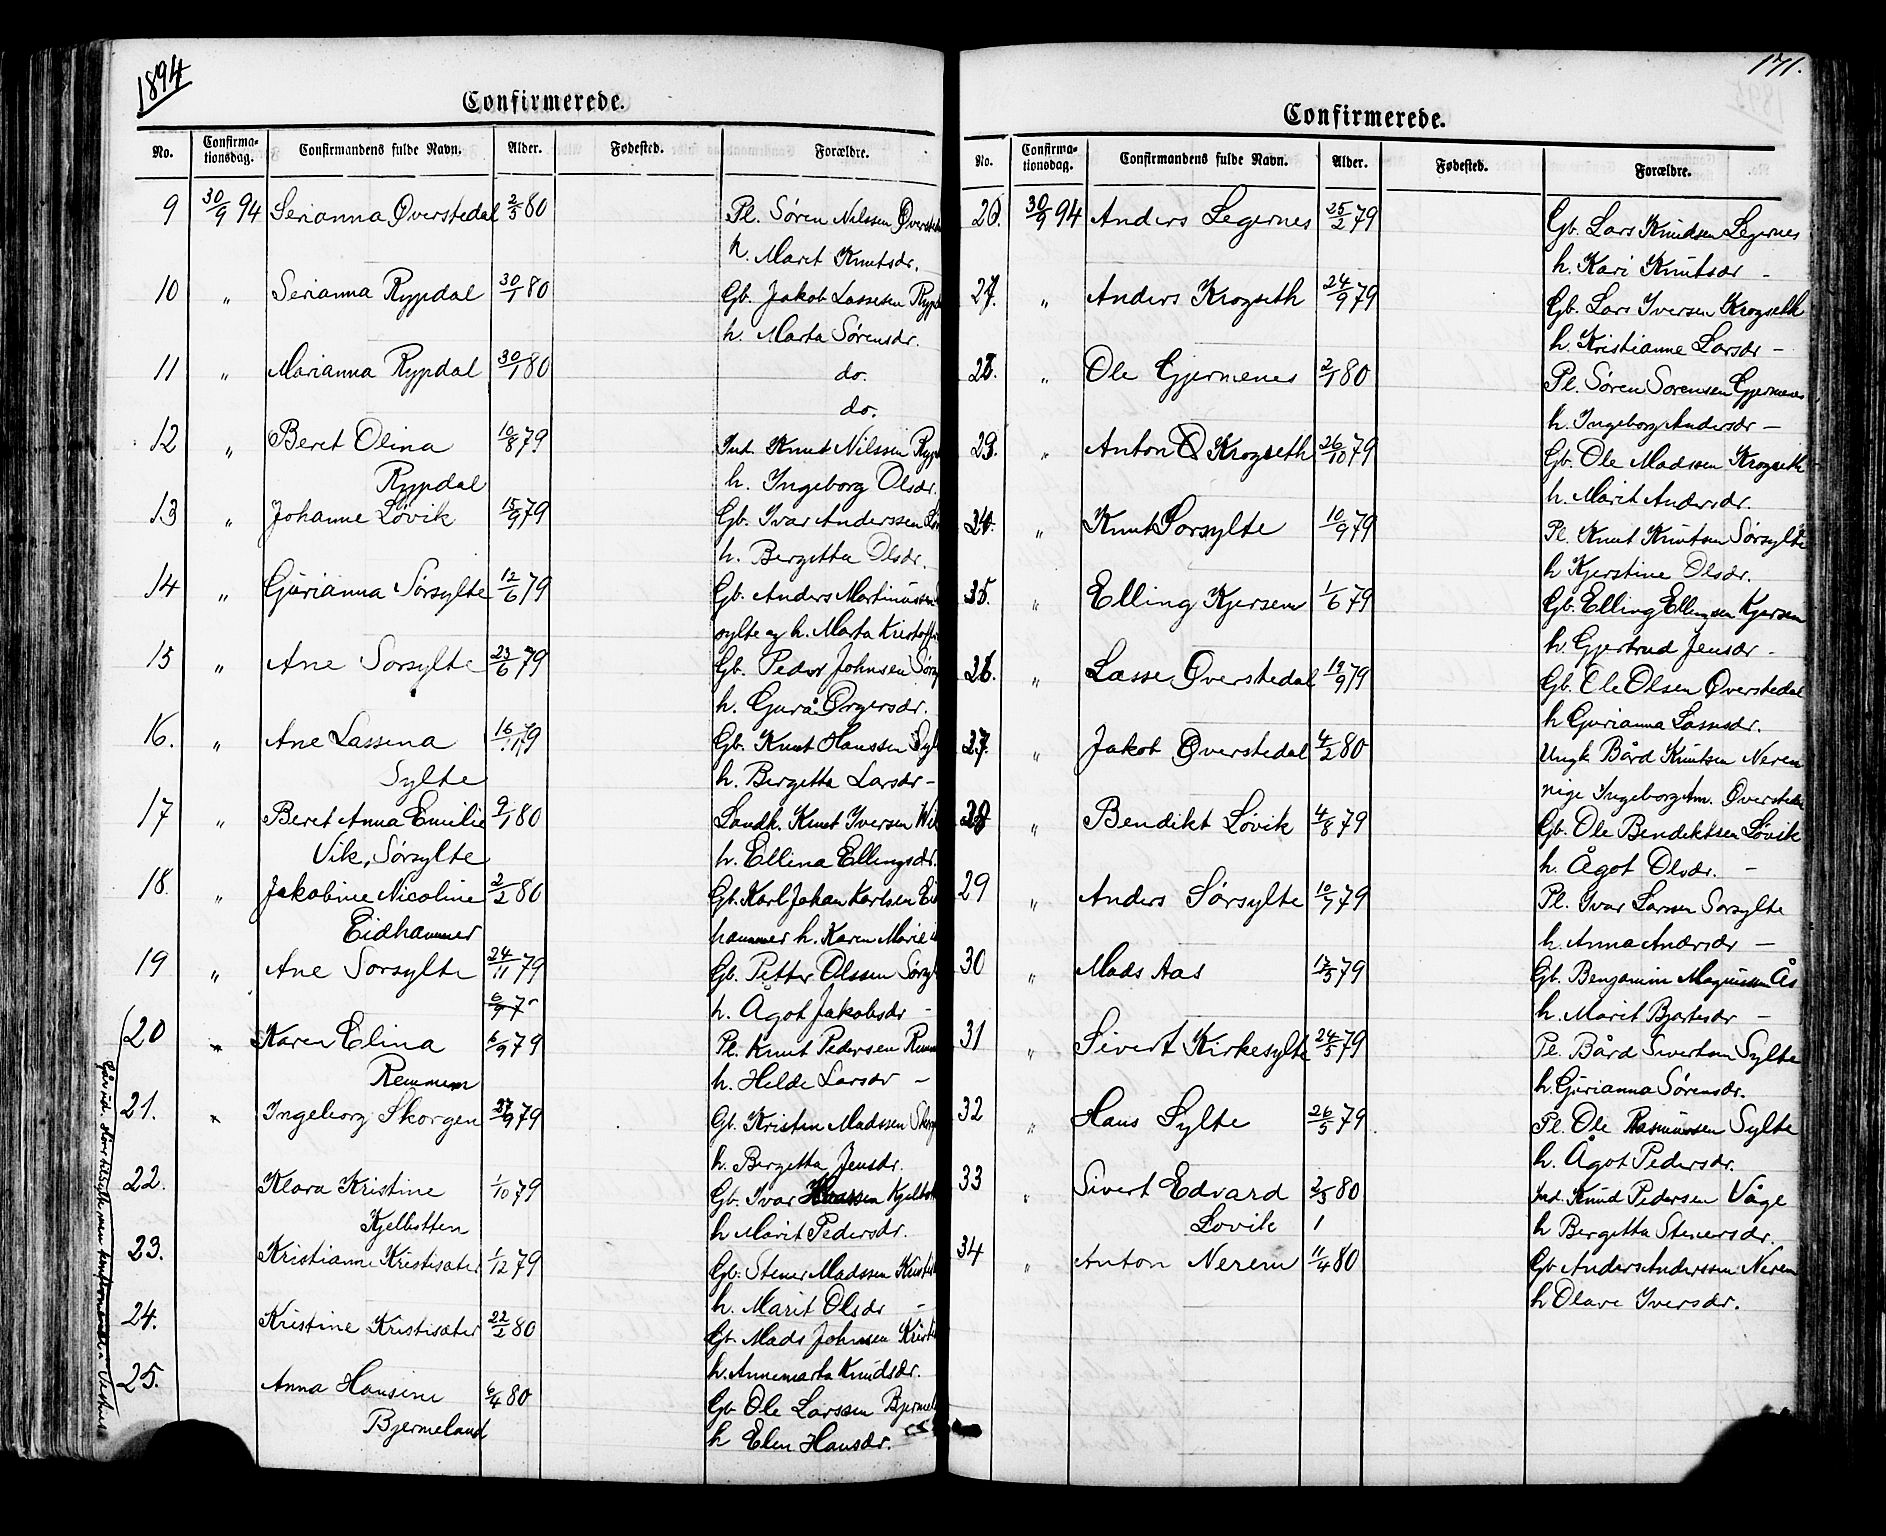 1894
Confirmerede.
No. Confirma-tionsdag. Confirmandens fulde Navn. Alder. Fødested. Forældre.
9 30/9 94 Serianna Øverstedal 2/5 80 Pl. Søren Nilssen
h. Marit Knutsdr.
10 " Serianna Rypdal 30/1 80 Gb. Jakob Lassesen
h. Marta Sørensdr.
11 " Marianna Rypdal 30/1 80 do.
do.
12 " Beret Olina 10/8 79 Ind. Knut Nilssen
Rypdal h. Ingeborg Olsdr.
13 " Johanne Løvik 15/9 79 Gb. Ivar Anderssen
h. Bergetta Olsdr.
14 " Gurianna Sørsylte 12/6 79 Gb. Anders Martinussen
sylte og h. Marta
15 " Ane Sorsylte 23/6 79 Gb. Peder Johnsen
h. Gurå
16. " Ane Lassena 16/11 79 Gb. Knut Hanssen
Sylte h. Bergetta Larsdr –
17 " Beret Anna Emilie 9/1 80 Landh. Knut Iversen
Vik, Sørsylte h. Ellina Ellingsdr.
18. " Jakobine Nicoline 2/2 80 Gb. Karl Johan Karlsen
Eidhammer hammer h. Karen Marie
19 " Ane Sorsylte 24/11 79 Gb. Petter Olssen
h. Ågot Jakobsdr –
20 " Karen Elina 6/9 79 Pl. Knut Pedersen
Remmem h. Helde Larsdr –
21. " Ingeborg Skorgen 27/9 79 Gb. Kristen Madssen
h. Bergetta Jensdr.
22. Klara Kristine 1/10 79 Gb. Ivar
Kjelbotten h Marit Pedersdr.
23. Kristianne Kristisæter 1/12 79 Gb. Stener Madssen
h. Marit Olsdr –
24. Kristine Kristisæter 22/2 80 Gb. Mads Johnsen
h. Annemarta Knudsdr.
25. Anna Hansine 6/4 80 Gb. Ole Larssen
Bjermeland h Elen Hansdr.
171.
Confirmerede.
No. Confirma-tionsdag. Confirmandens fulde Navn. Alder. Fødested. Forældre.
20. 30/9 94 Anders Legernes 25/2 79 Gb. Lars Knudsen Legernes
h. Kari Knutsdr –
" Anders Krogseth 24/9 79 Gb. Lars Iversen Krogseth
h. Kristianne Larsdr –
" Ole Gjermenes 2/1 80 Pl. Søren Sorensen Gjermenes
h. Ingeborg Andersdr –
" Anton O Krogseth 26/10 79 Gb. Ole Madssen Krogseth
h. Marit Andersdr.
" Knut Sorsylte 10/9 79 Pl. Knut Knutsen Sørsylte
h Kjerstine Olsdr.
" Elling Kjersem 1/6 79 Gb. Elling Ellingsen Kjersem
h. Gjertrud Jensdr –
" Lasse Øverstedal 19/9 79 Gb. Ole Olsen Øverstedal
h Gurianna Lassesdr.
27. " Jakob Øverstedal 4/2 80 Ungk Bård Knutsen Nerem
pige Ingeborg Am.
28 " Bendikt Løvik 4/8 79 Gb. Ole Bendiktsen Løvik
h. Ågot Olsdr. –
29 " Anders Sørsylte 10/7 79 Pl. Ivar Larsen Sorsylte
h. Anna Andersdr –
30 " Mads Aas 12/5 79 Gb. Benjamin Magnussen Ås
h. Marit Bjortsdr –
31 " Sivert Kirkesylte 24/5 79 Pl. Bård Sivertsen Sylte
h. Gurianna Sørensdr.
32 " Hans Sylte 26/5 79 Pl. Ole Rasmussen Sylte
h. Ågot Pedersdr.
33 " Sivert Edvard 2/5 80 Ind. Knud Pedersen Våge
Lovik 1 h Bergetta Stenersdr.
34 " Anton Nerem 11/4 80 Gb Anders Anderssen Nerem
h Olave Iversdr.